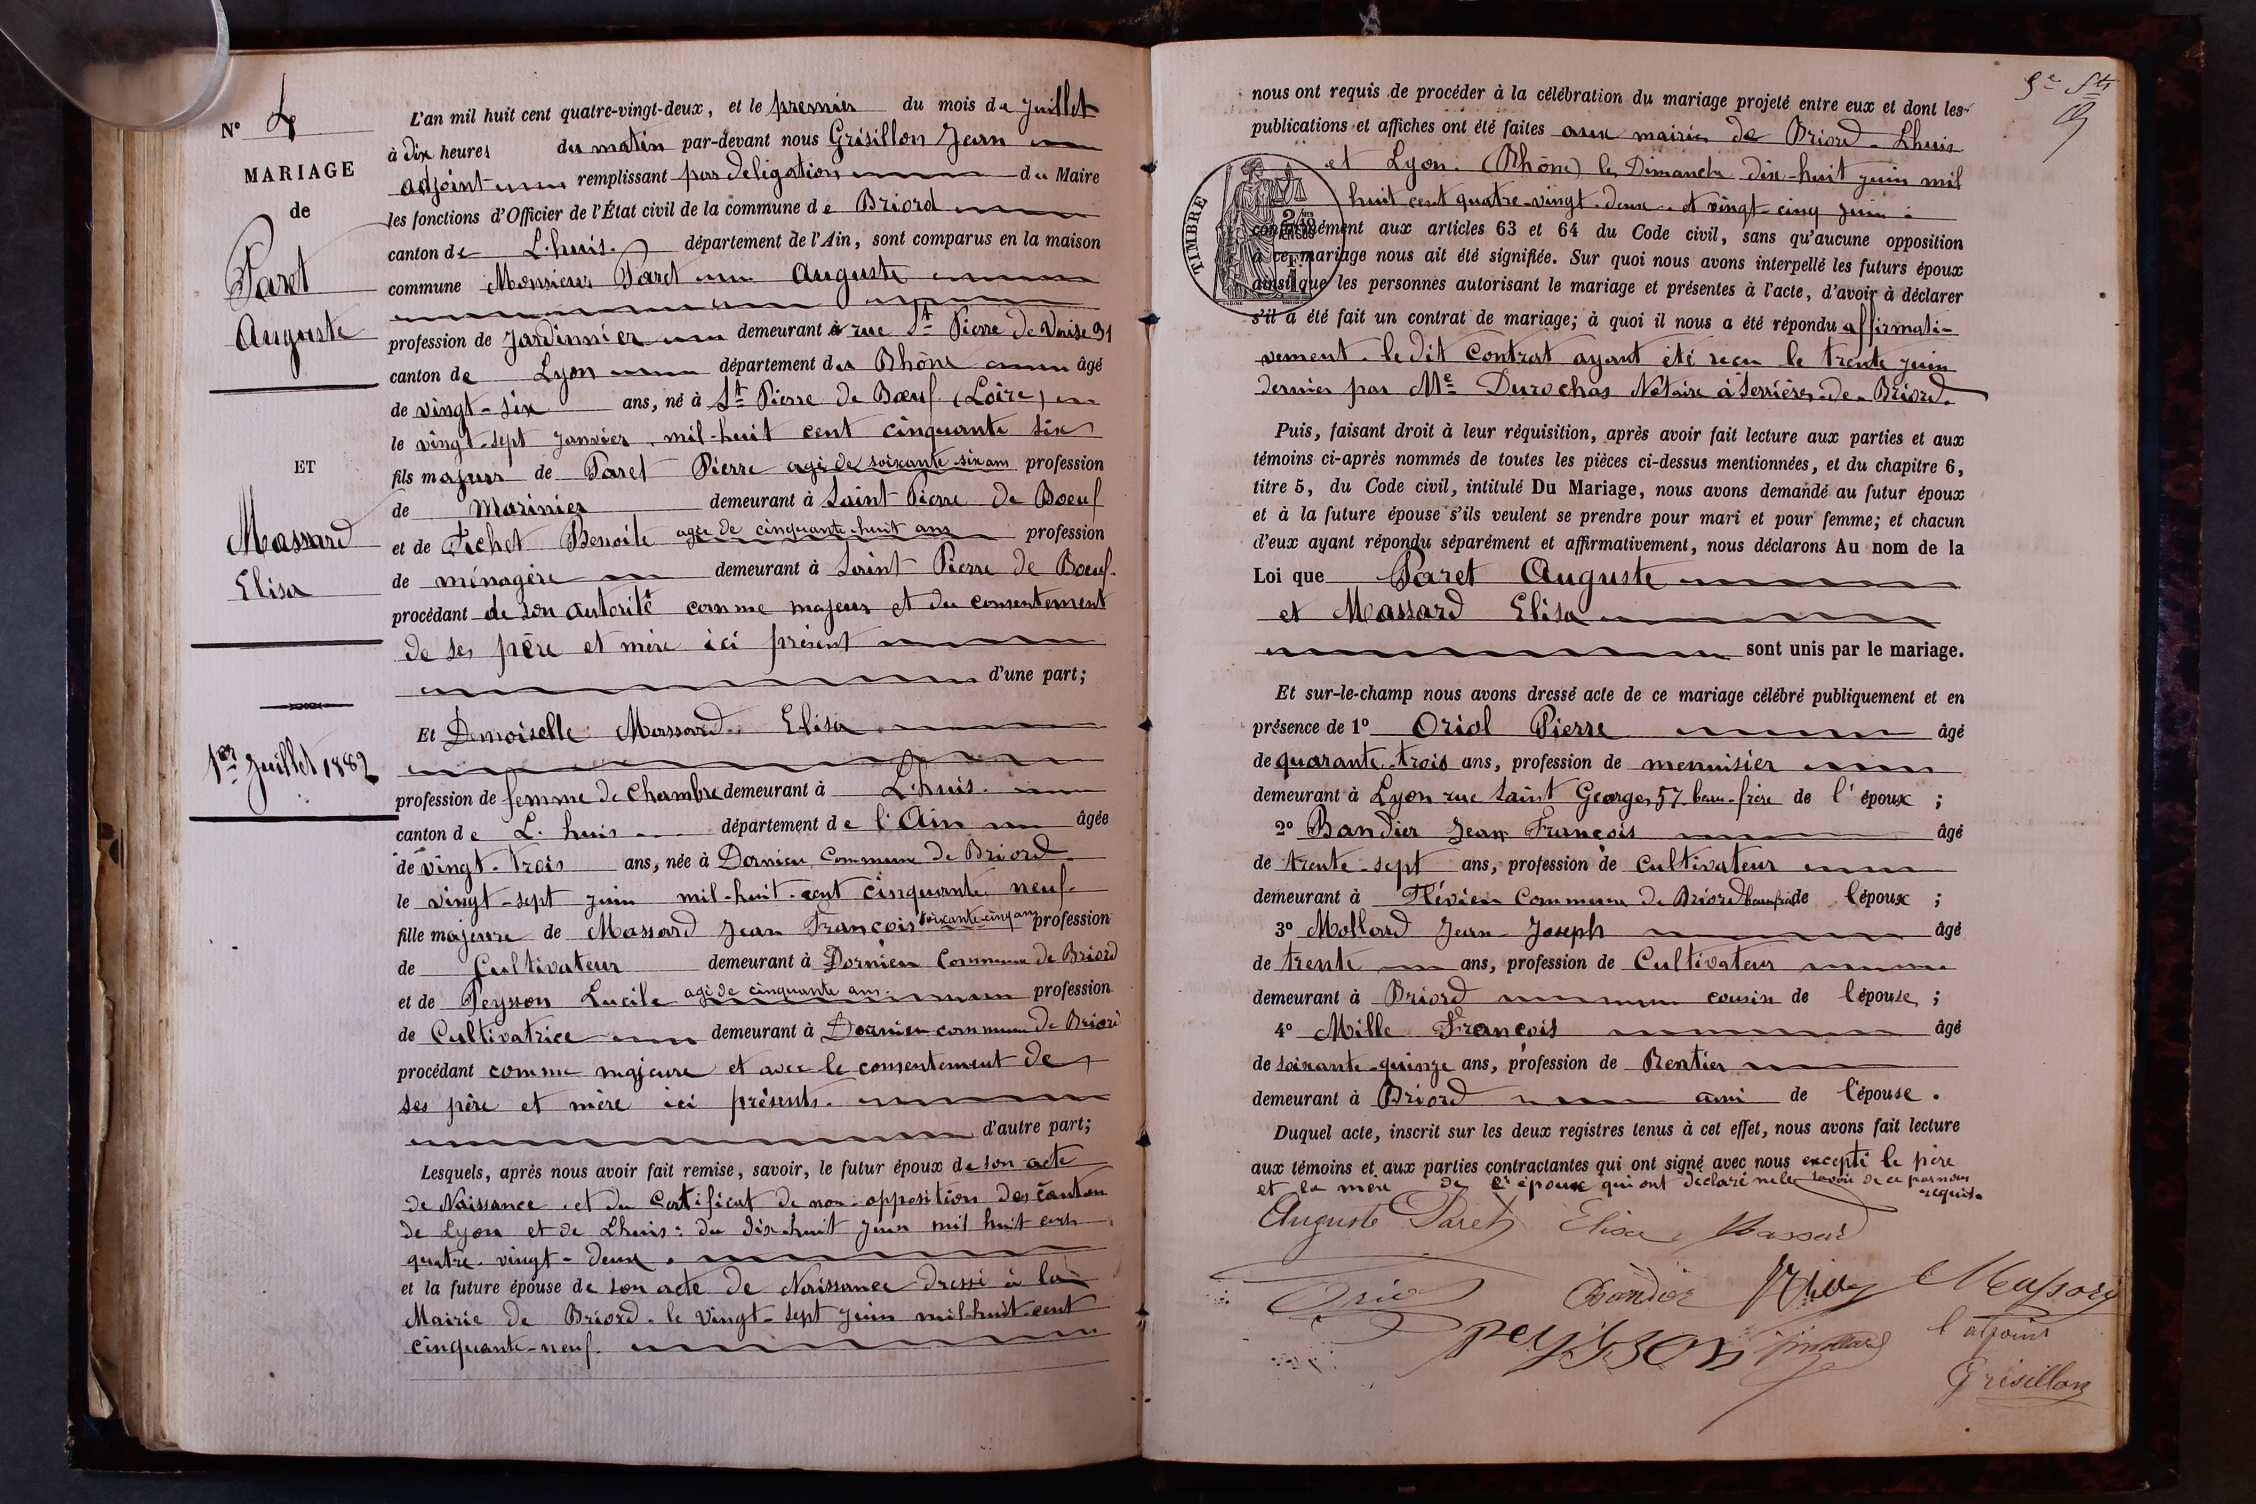 N° 4
MARIAGE
de
Paret
Auguste
ET
Massard
Elisa
1er Juillet 1882
L'an mil huit cent quatre-vingt-deux, et le premier du mois de Juillet
à dix heures du matin par-devant nous Grisillon Jean
adjoint remplissant par deligation du Maire
les fonctions d'Officier de l'État civil de la commune de Briord
canton de L'huis. département de l'Ain, sont comparus en la maison
commune Monsieur Paret Auguste
profession de Jardinnier demeurant à rue St Pierre de Vaise 31
canton de Lyon département du Rhône âgé
de vingt-six ans, né à St Pierre de Bœuf (Loire)
le vingt-sept Janvier mil-huit cent cinquante six
fils majeur de Paret Pierre agé de soixante-six ans profession
de Marinier demeurant à Saint Pierre de Boeuf
et de Fichet Benoite agée de cinquante-huit ans profession
de ménagère demeurant à Saint Pierre de Boeuf.
procédant de son autorité comme majeur et du consentement
de ses père et mère ici présent
d'une part;
Et Demoiselle Massard Elisa
profession de femme de Chambre demeurant à L'huis.
canton de L. huis département de l'Ain âgée
de vingt-trois ans, née à Dornieu Commune de Briord
le vingt-sept juin mil-huit-cent cinquante neuf.
fille majeure de Massard Jean François soixante-cinq ans profession
de Cultivateur demeurant à Dornieu Commune de Briord
et de Peysson Lucile agé de cinquante ans. profession
de Cultivatrice demeurant à Dornieu commune de Briord
procédant comme majeure et avec le consentement de
ses père et mère ici présents.
d'autre part;
Lesquels, après nous avoir fait remise, savoir, le futur époux de son acte
de Naissance et du Certificat de non-opposition des canton
de Lyon et de Lhuis: du dix-huit juin mil huit cent
quatre-vingt-deux.
et la future épouse de son acte de Naissance dressé à la
Mairie de Briord. le vingt-sept juin mil-huit-cent
cinquante-neuf.
nous ont requis de procéder à la célébration du mariage projeté entre eux et dont les
publications et affiches ont été faites aux mairies de Briord Lhuis
et Lyon. (Rhône) les Dimanche dix-huit juin mil
huit cent quatre-vingt-deux et vingt-cinq juin
TIMBRE
conformément aux articles 63 et 64 du Code civil, sans qu'aucune opposition
à ce mariage nous ait été signifiée. Sur quoi nous avons interpellé les futurs époux
ainsi que les personnes autorisant le mariage et présentes à l'acte, d'avoir à déclarer
s'il a été fait un contrat de mariage; à quoi il nous a été répondu affirmati-
vement. le dit Contrat ayant été reçu le trente juin
dernier par Me Durochas Notaire à Serrières-de-Briord.
Puis, faisant droit à leur réquisition, après avoir fait lecture aux parties et aux
témoins ci-après nommés de toutes les pièces ci-dessus mentionnées, et du chapitre 6,
titre 5, du Code civil, intitulé Du Mariage, nous avons demandé au futur époux
et à la future épouse s'ils veulent se prendre pour mari et pour femme; et chacun
d'eux ayant répondu séparément et affirmativement, nous déclarons Au nom de la
Loi que Paret Auguste
et Massard Elisa
sont unis par le mariage.
Et sur-le-champ nous avons dressé acte de ce mariage célébré publiquement et en
présence de 1° Oriol Pierre âgé
de quarante-trois ans, profession de menuisier
demeurant à Lyon rue Saint Georges 57 beau-frère de l'époux ;
2° Bandier Jean François âgé
de trente-sept ans, profession de Cultivateur
demeurant à Flévieu Commune de Briord beau-frère de l'époux ;
3° Mollard Jean-Joseph âgé
de trente ans, profession de Cultivateur
demeurant à Briord cousin de l'épouse ;
4° Mille François âgé
de soixante-quinze ans, profession de Rentier
demeurant à Briord ami de l'épouse .
Duquel acte, inscrit sur les deux registres tenus à cet effet, nous avons fait lecture
aux témoins et aux parties contractantes qui ont signé avec nous excepté le père
et la mère de l'époux qui ont déclaré ne le savoir de ce par nous
requis.
Auguste Paret Elisa Massard
Oriol Bandier Massard
Peysson Mollard l'adjoint
Grisillon